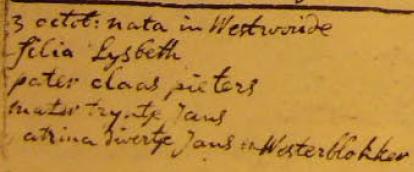 3 octob: nata in Westwoude
filia Lysbeth
pater claas pieters
mater tryntje Jans
atrina divertje Jans in Westerblokker